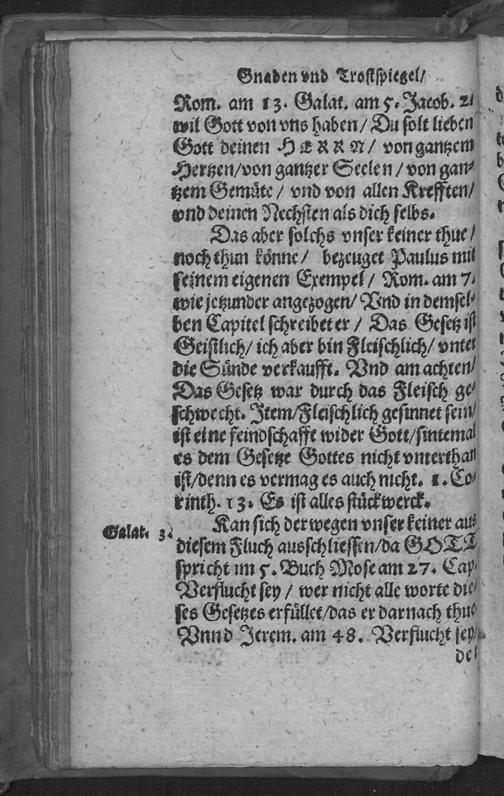 Gnaden vnd Trostspiegel/
Rom. am 13. Galat. am 5. Jacob. 2/
wil Gott von vns haben/ Du solt lieben
Gott deinen HERRN/ von gantzem
Hertzen/von gantzer Seelen/ von gan-
tzem Gemüte/ vnd von allen Krefften/
vnd deinen Nechsten als dich selbs.
Das aber solchs vnser keiner thue/
noch thun könne/ bezeuget Paulus mit
seinem eigenen Exempel/ Rom. am 7.
wie jetzunder angezogen/ Vnd in demsel-
ben Capitel schreibet er/ Das Gesetz ist
Geistlich/ ich aber bin Fleischlich/ vnter
die Sünde verkaufft. Vnd am achten/
Das Gesetz war durch das Fleisch ge-
schwecht. Item/Fleischlich gesinnet sein/
ist eine feindschafft wider Gott/sintemal
es dem Gesetze Gottes nicht vnterthan
ist/denn es vermag es auch nicht. 1. Co-
rinth. 13. Es ist alles stückwerck.
Kan sich derwegen vnser keiner aus
Galat. 3.
diesem Fluch ausschliessen/da GOTT
spricht im 5. Buch Mose am 27. Cap.
Verflucht sey/ wer nicht alle worte die-
ses Gesetzes erfüllet/das er darnach thue
Vnnd Jerem. am 48. Verflucht sey/
der